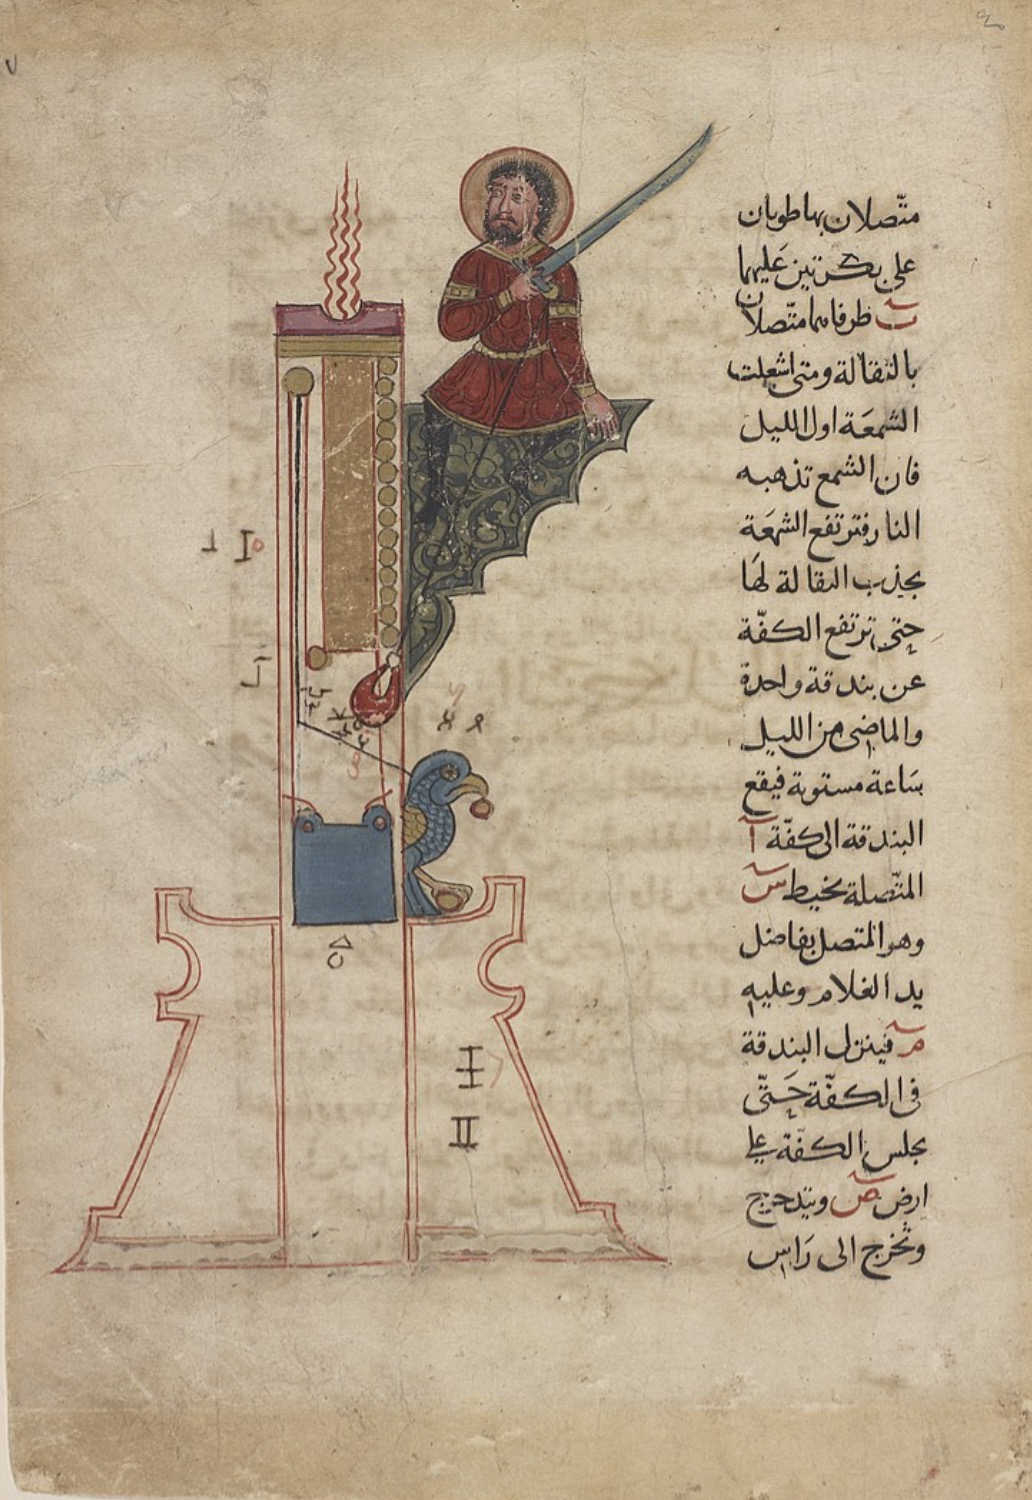 متّصلان بها طويان
على بكرتين عَليهما
ن طرفاهما متّصلان
بالثقالة ومتى اشعلت
الشمعَة اول الليل
فان الشمع تذهبه
النار فترتفع الشمعَة
بجذب الثقالة لهَا
حتى ترتفع الكفّة
عن بندقة واحدة
والماضى من الليل
سَاعة مستوية فيقع
البندقة الى كفّة آ
المتّصلة بخيط س
وهو المتصل بفاضل
يد الغلام وعليه
م فينزل البندقة
فى الكفّة حَتّى
يجلس الكفّة على
ارض ص ويتدحرج
وتخرج الى رَاس